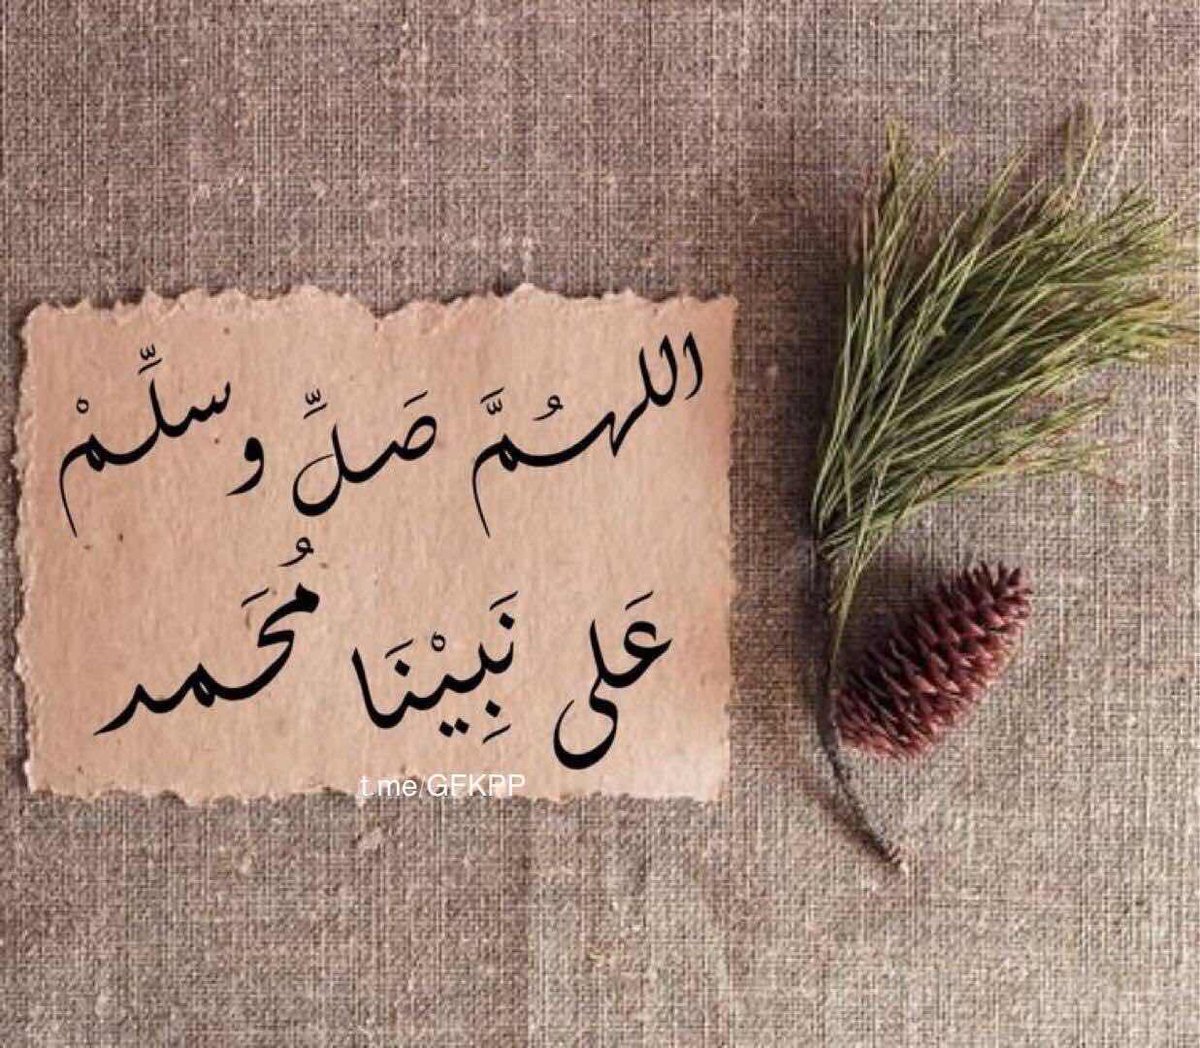 اللهُمَّ صَلِّ وسلِّمْ
عَلى نَبِيْنَا مُحَمد
t.me/GFKPP